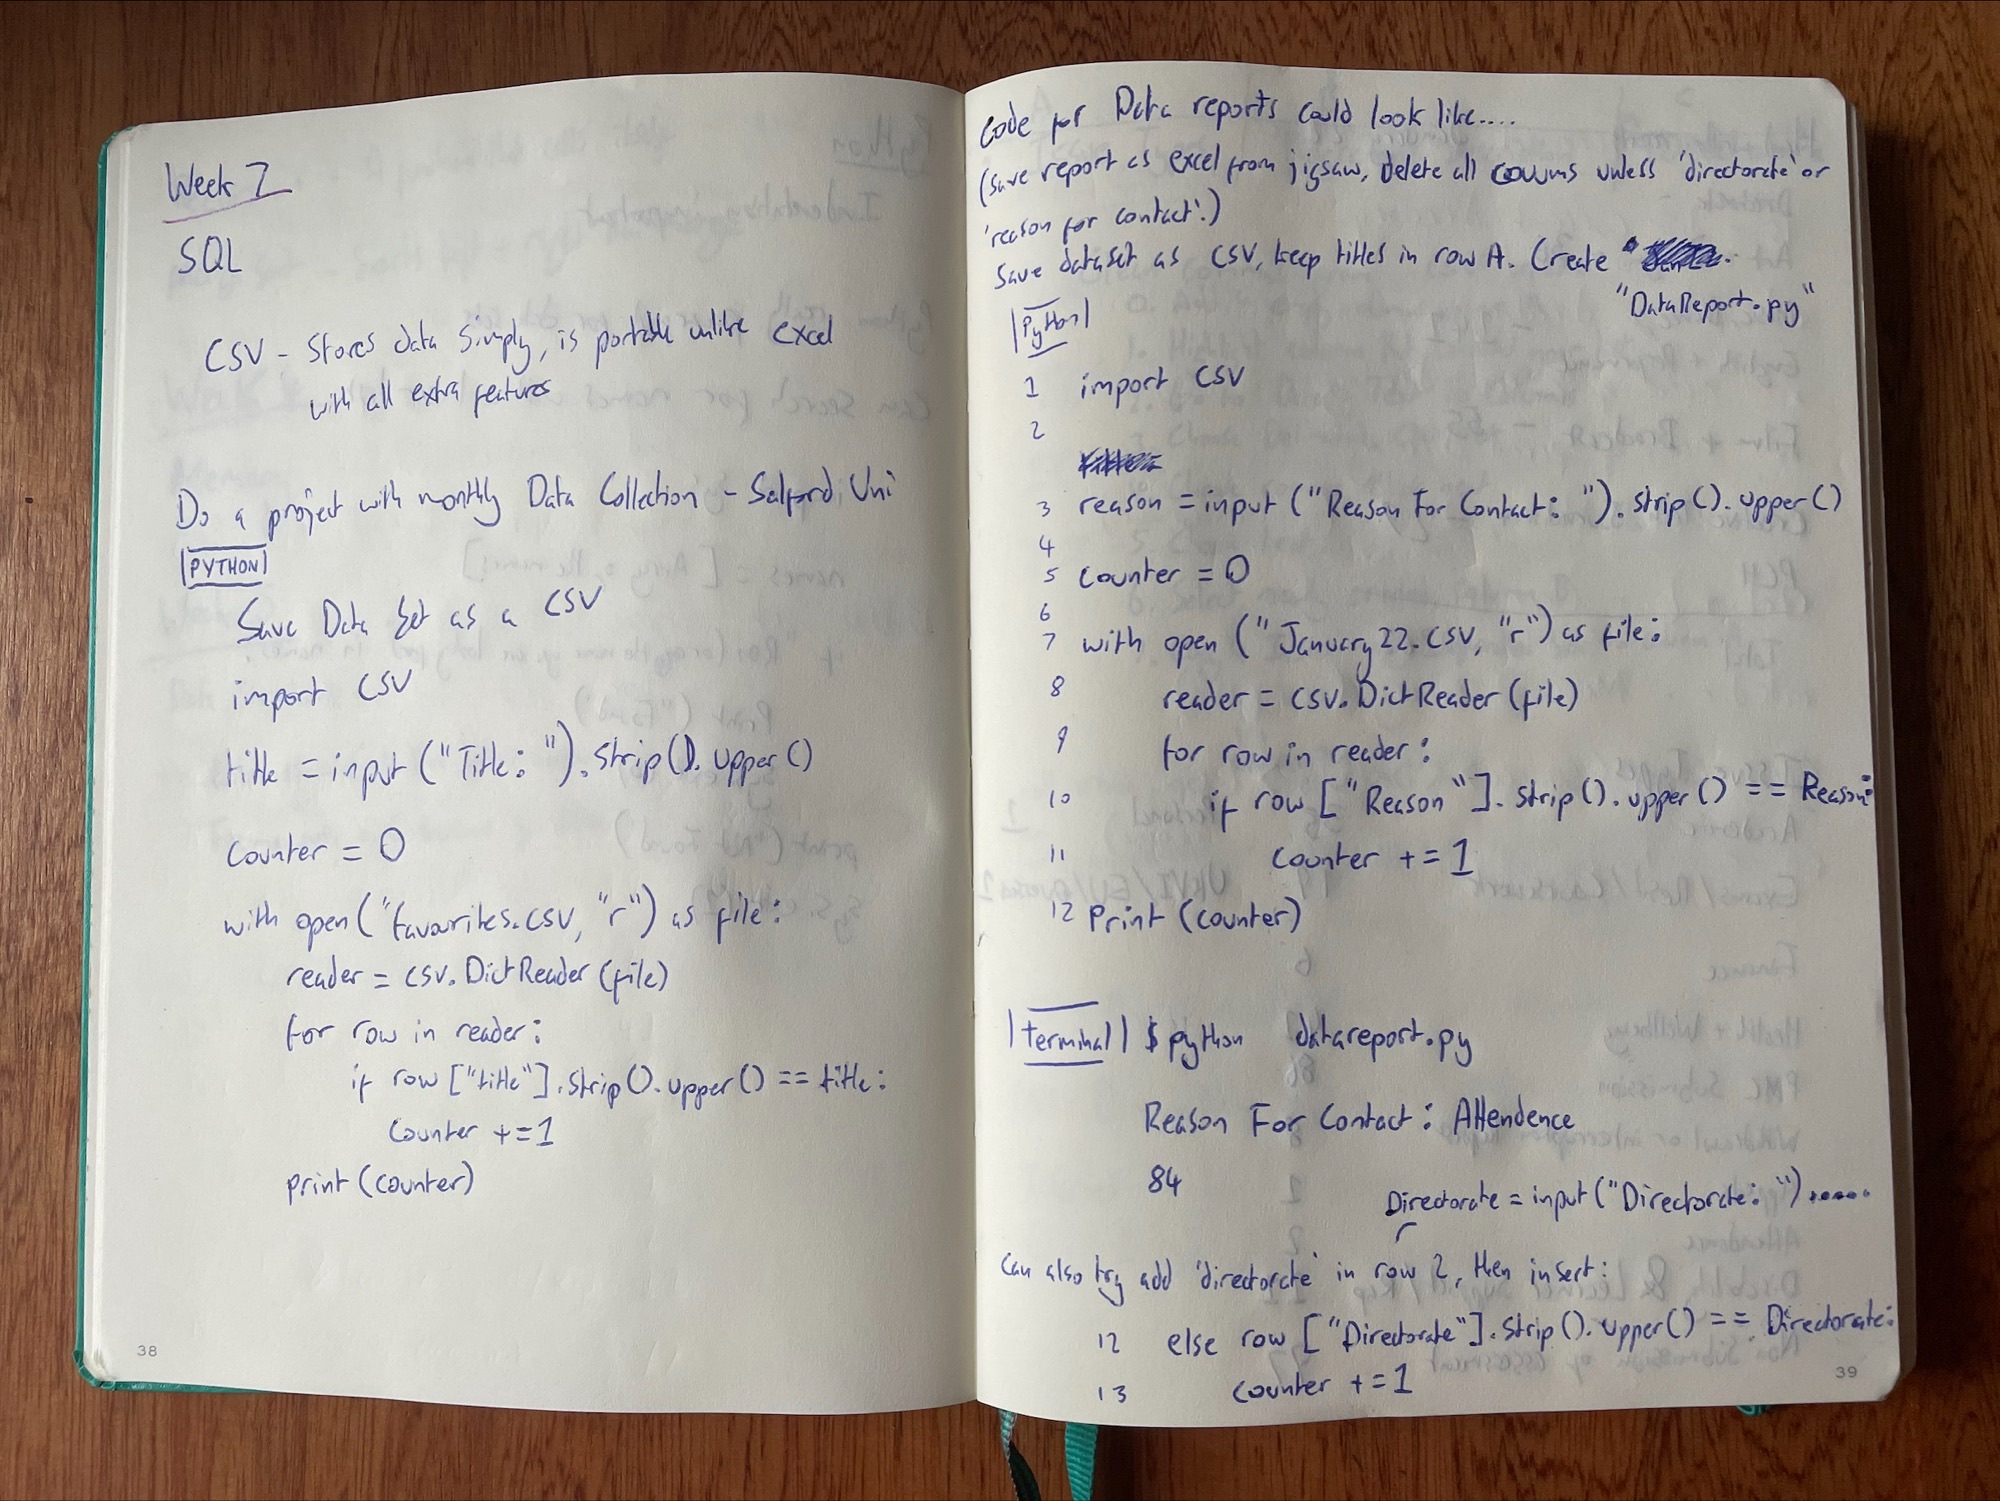 Week 7
SQL
CSV - Stores data simply, is portable unlike excel
with all extra features
Do a project with monthly Data Collection - Salford Uni
PYTHON
Save Data Set as a CSV
import CSV
title = input ("Title: "). strip(). upper()
Counter = 0
with open ("favourites.csv, "r") as file:
reader = csv. DictReader (file)
for row in reader:
if row ["title"]. strip(). upper() == title:
Counter += 1
print (counter)
38
Code for Data reports could look like....
(save report as excel from jigsaw, delete all couums unless 'directorate' or
'reason for contact'.)
Save dataset as CSV, keep titles in row A. Create
"DataReport.py"
Python
1 import CSV
2
3 reason = input ("Reason For Contact: "). strip(). upper()
4
5 Counter = 0
6
7 with open ("January22.csv, "r") as file:
8 reader = csv. DictReader (file)
9 for row in reader:
10 if row ["Reason"]. strip(). upper() == Reason:
11 Counter += 1
12 Print (counter)
terminal $ python datareport.py
Reason For Contact: Attendence
84
Directorate = input ("Directorate: ").....
Can also try add 'directorate' in row 2, then insert:
12 else row ["Directorate"]. strip(). upper() == Directorate:
13 Counter += 1
39